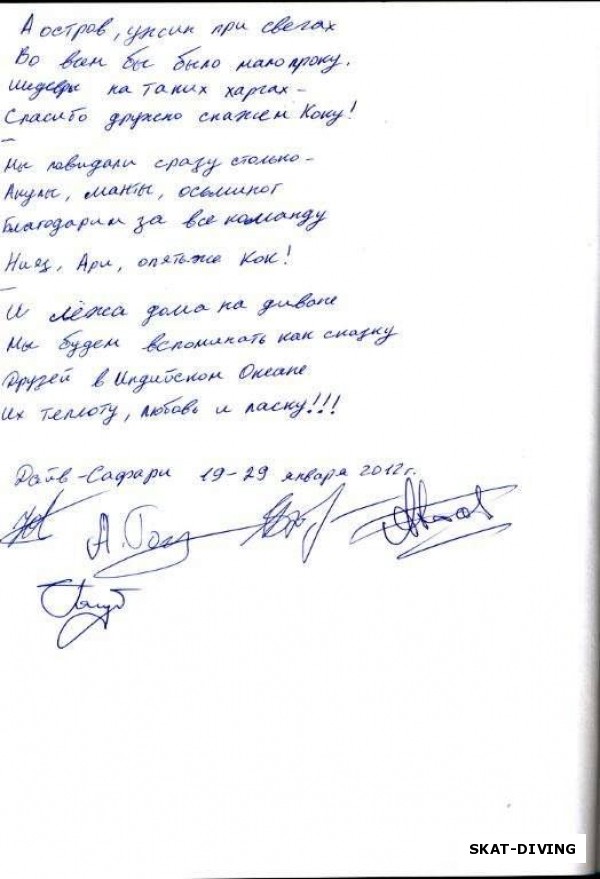 А остров, ужин при свечах
Во всем бы было мало проку.
Шедевры на таких харчах –
Спасибо дружно скажем Коку!
–
Мы повидали сразу столько –
Акулы, манты, осьминог
Благодарим за все команду
Нияз, Ари, опять же Кок!
–
И лёжа дома на диване
Мы будем вспоминать как сказку
Друзей в Индийском Океане
Их теплоту, любовь и ласку!!!
Дайв-Сафари 19-29 января 2012 г.
А. Гол
SKAT-DIVING